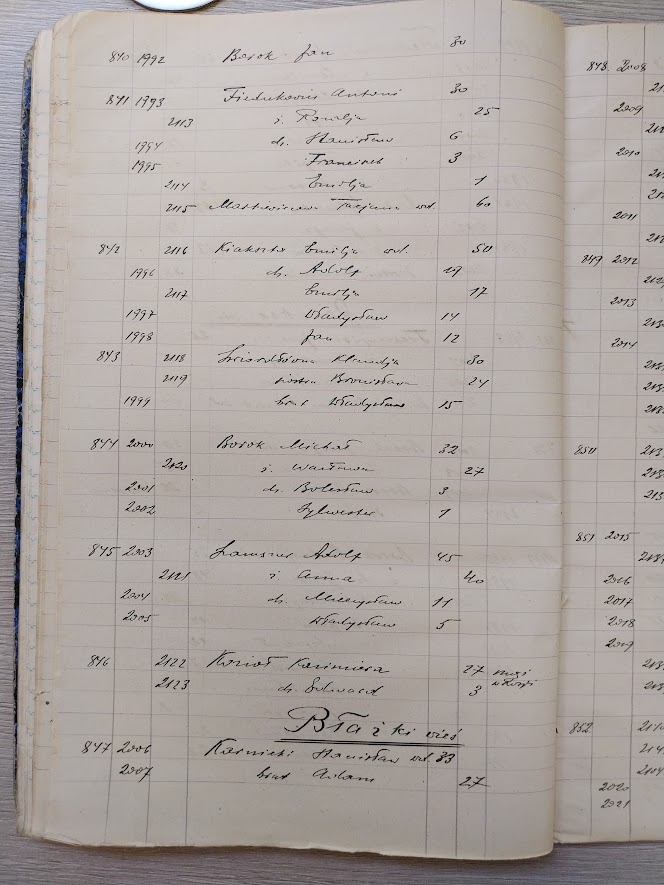 840 1992 Borok Jan 30
841 1993 Fiedukowicz Antoni 30
2113 ż. Rozalja 25
1994 dz. Stanisław 6
1995 Franciszek 3
2114 Emilja 1
2115 Tacjana wd. 60
842 2116 Emilja wd. 50
1996 dz. Adolf 19
2117 Emilja 17
1997 Władysław 14
1998 Jan 12
843 2118 Klaudja 30
2119 siostra Bronisława 24
1999 brat Władysław 15
844 2000 Borok Michał 32
2120 ż. Wacława 27
2001 dz. Bolesław 3
2002 Sylwester 1
845 2003 Adolf 45
2121 ż. Anna 40
2004 dz. Mieczysław 11
2005 Władysław 5
846 2122 Kozioł Kazimiera 27 mąż
2123 dz. Edward 3 w Rosji
Błażki wieś
847 2006 Karnicki Stanisław wd. 33
2007 brat Adam 27
848 2008
2009
2010
2011
849 2012
2013
2014
850
851 2015
2016
2017
2018
2019
852
2020
2021